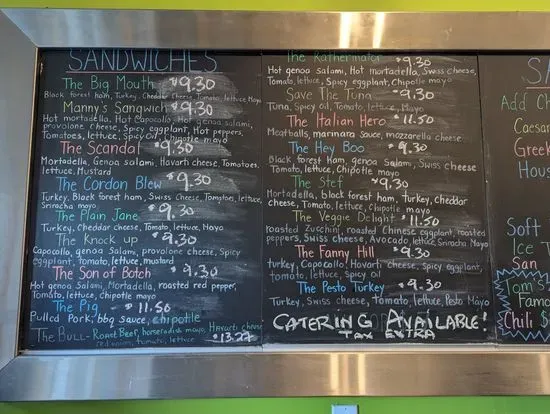 SANDWICHES
The Big Mouth $9.30
Black forest ham, Turkey, Cheddar Cheese Tomato, lettuce, Mayo
Manny's Sandwich $9.30
Hot mortadella, Hot Capocollo, Hot genoa salami,
provolone cheese, Spicy eggplant, Hot peppers,
Tomatoes, lettuce, Spicy Oil, Chipotle mayo
The Scandal $9.30
Mortadella, Genoa salami, Havarti cheese, Tomatoes,
lettuce, Mustard
The Cordon Blew $9.30
Turkey, Black forest ham, Swiss Cheese, Tomatoes, lettuce,
Sriracha mayo
The Plain Jane $9.30
Turkey, Cheddar cheese, Tomato, lettuce, Mayo
The Knock up $9.30
Capocollo, genoa Salami, provolone cheese, Spicy
eggplant, tomato, lettuce, mustard
The Son of Botch $9.30
Hot genoa Salami, Mortadella, roasted red pepper,
Tomato, lettuce, Chipotle mayo
The Pig $11.50
Pulled Pork, bbq sauce, chipotle
The Bull - Roast Beef, horseradish mayo, Havarti cheese
tomato, lettuce $13.27
The Rathernator $9.30
Hot genoa salami, Hot mortadella, Swiss cheese,
Tomato, lettuce, Spicy eggplant, Chipotle mayo
Save The Tuna $9.30
Tuna, Spicy oil, Tomato, lettuce, Mayo
The Italian Hero $11.50
Meatballs, marinara sauce, mozzarella cheese
The Hey Boo $9.30
Black forest Ham, genoa salami, Swiss cheese
Tomato, lettuce, Chipotle mayo
The Stef $9.30
Mortadella, Black forest ham, Turkey, Cheddar
cheese, Tomato, lettuce, Chipotle mayo
The Veggie Delight $11.50
roasted Zucchini, roasted Chinese eggplant, roasted
peppers, Swiss cheese, Avocado, lettuce, Sriracha Mayo
The Fanny Hill $9.30
turkey, Capocollo, Havarti cheese, Spicy eggplant,
tomato, lettuce, spicy Oil
The Pesto Turkey $9.30
Turkey, Swiss cheese, Tomato, lettuce, Pesto Mayo
CATERING AVAILABLE!
TAX EXTRA
SA
Add Ch
Caesar
Greek
Hous
Soft
Ice T
San
Tom's
Famo
Chili $